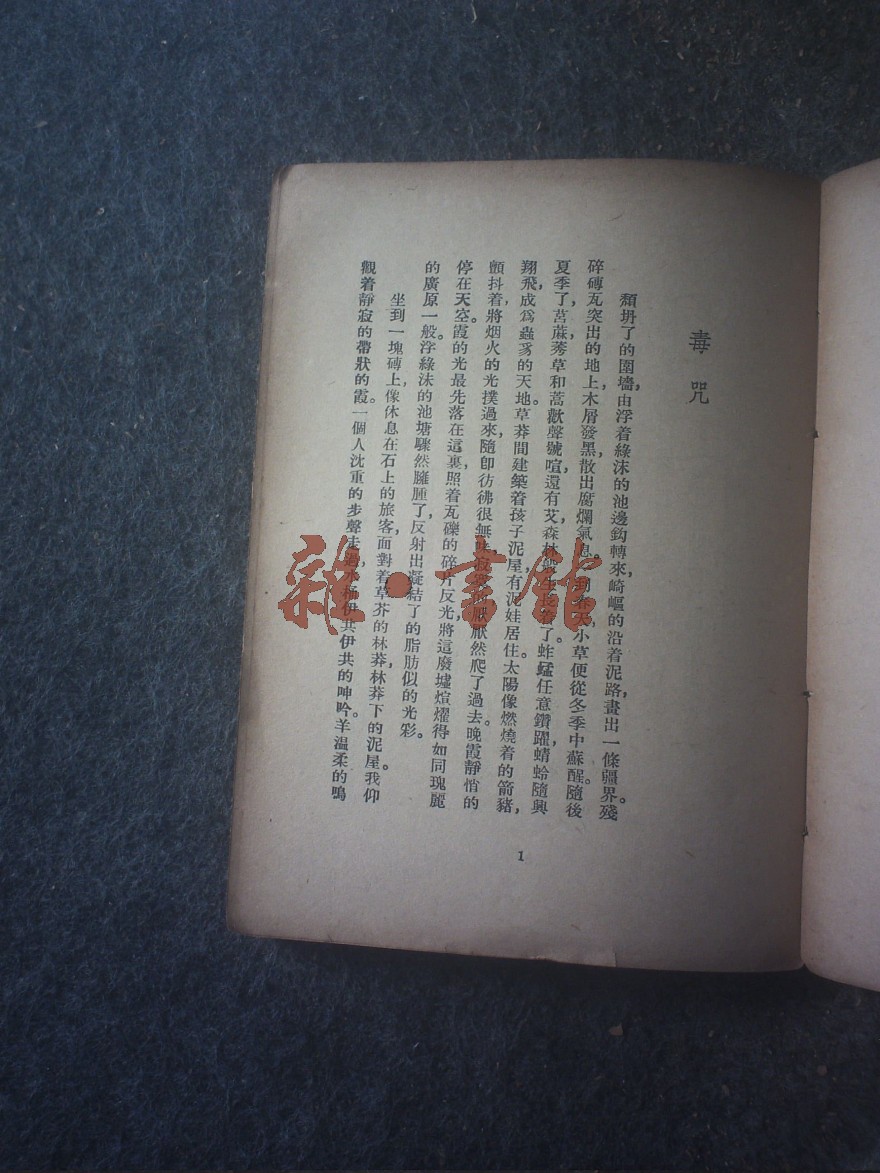 毒咒
頹坍了的圍墻，由浮着綠沫的池邊鈎轉來，崎嶇的沿着泥路，畫出一條疆界。殘
碎磚瓦突出的地上，木屑發黑，散出腐爛氣息。到春天，小草便從冬季中蘇醒。隨後
夏季了，萵蔴莠草和蒿歡聲號喧，還有艾，森林般生長着了。蚱蜢任意鑽躍，蜻蛉隨興
翔飛，成爲蟲豸的天地。草莽間建築着孩子泥屋，有泥娃居住。太陽像燃燒着的箭豬，
顫抖着將烟火的光撲過來，隨卽彷彿很無味，寂寞的厭厭然爬了過去。晚霞靜悄的
停在天空。霞的光最先落在這裏，照着瓦礫的碎片反光，將這廢墟煊燿得如同瑰麗
的廣原一般。浮綠沫的池塘驟然臃腫了，反射出凝結了的脂肪似的光彩。
坐到一塊磚上，像休息在石上的旅客，面對着草芥的林莽，林莽下的泥屋。我仰
觀着靜寂的帶狀的霞。一個人沈重的步聲走過，水桶伊共伊共的呻吟。羊溫柔的鳴
1
雜·書館